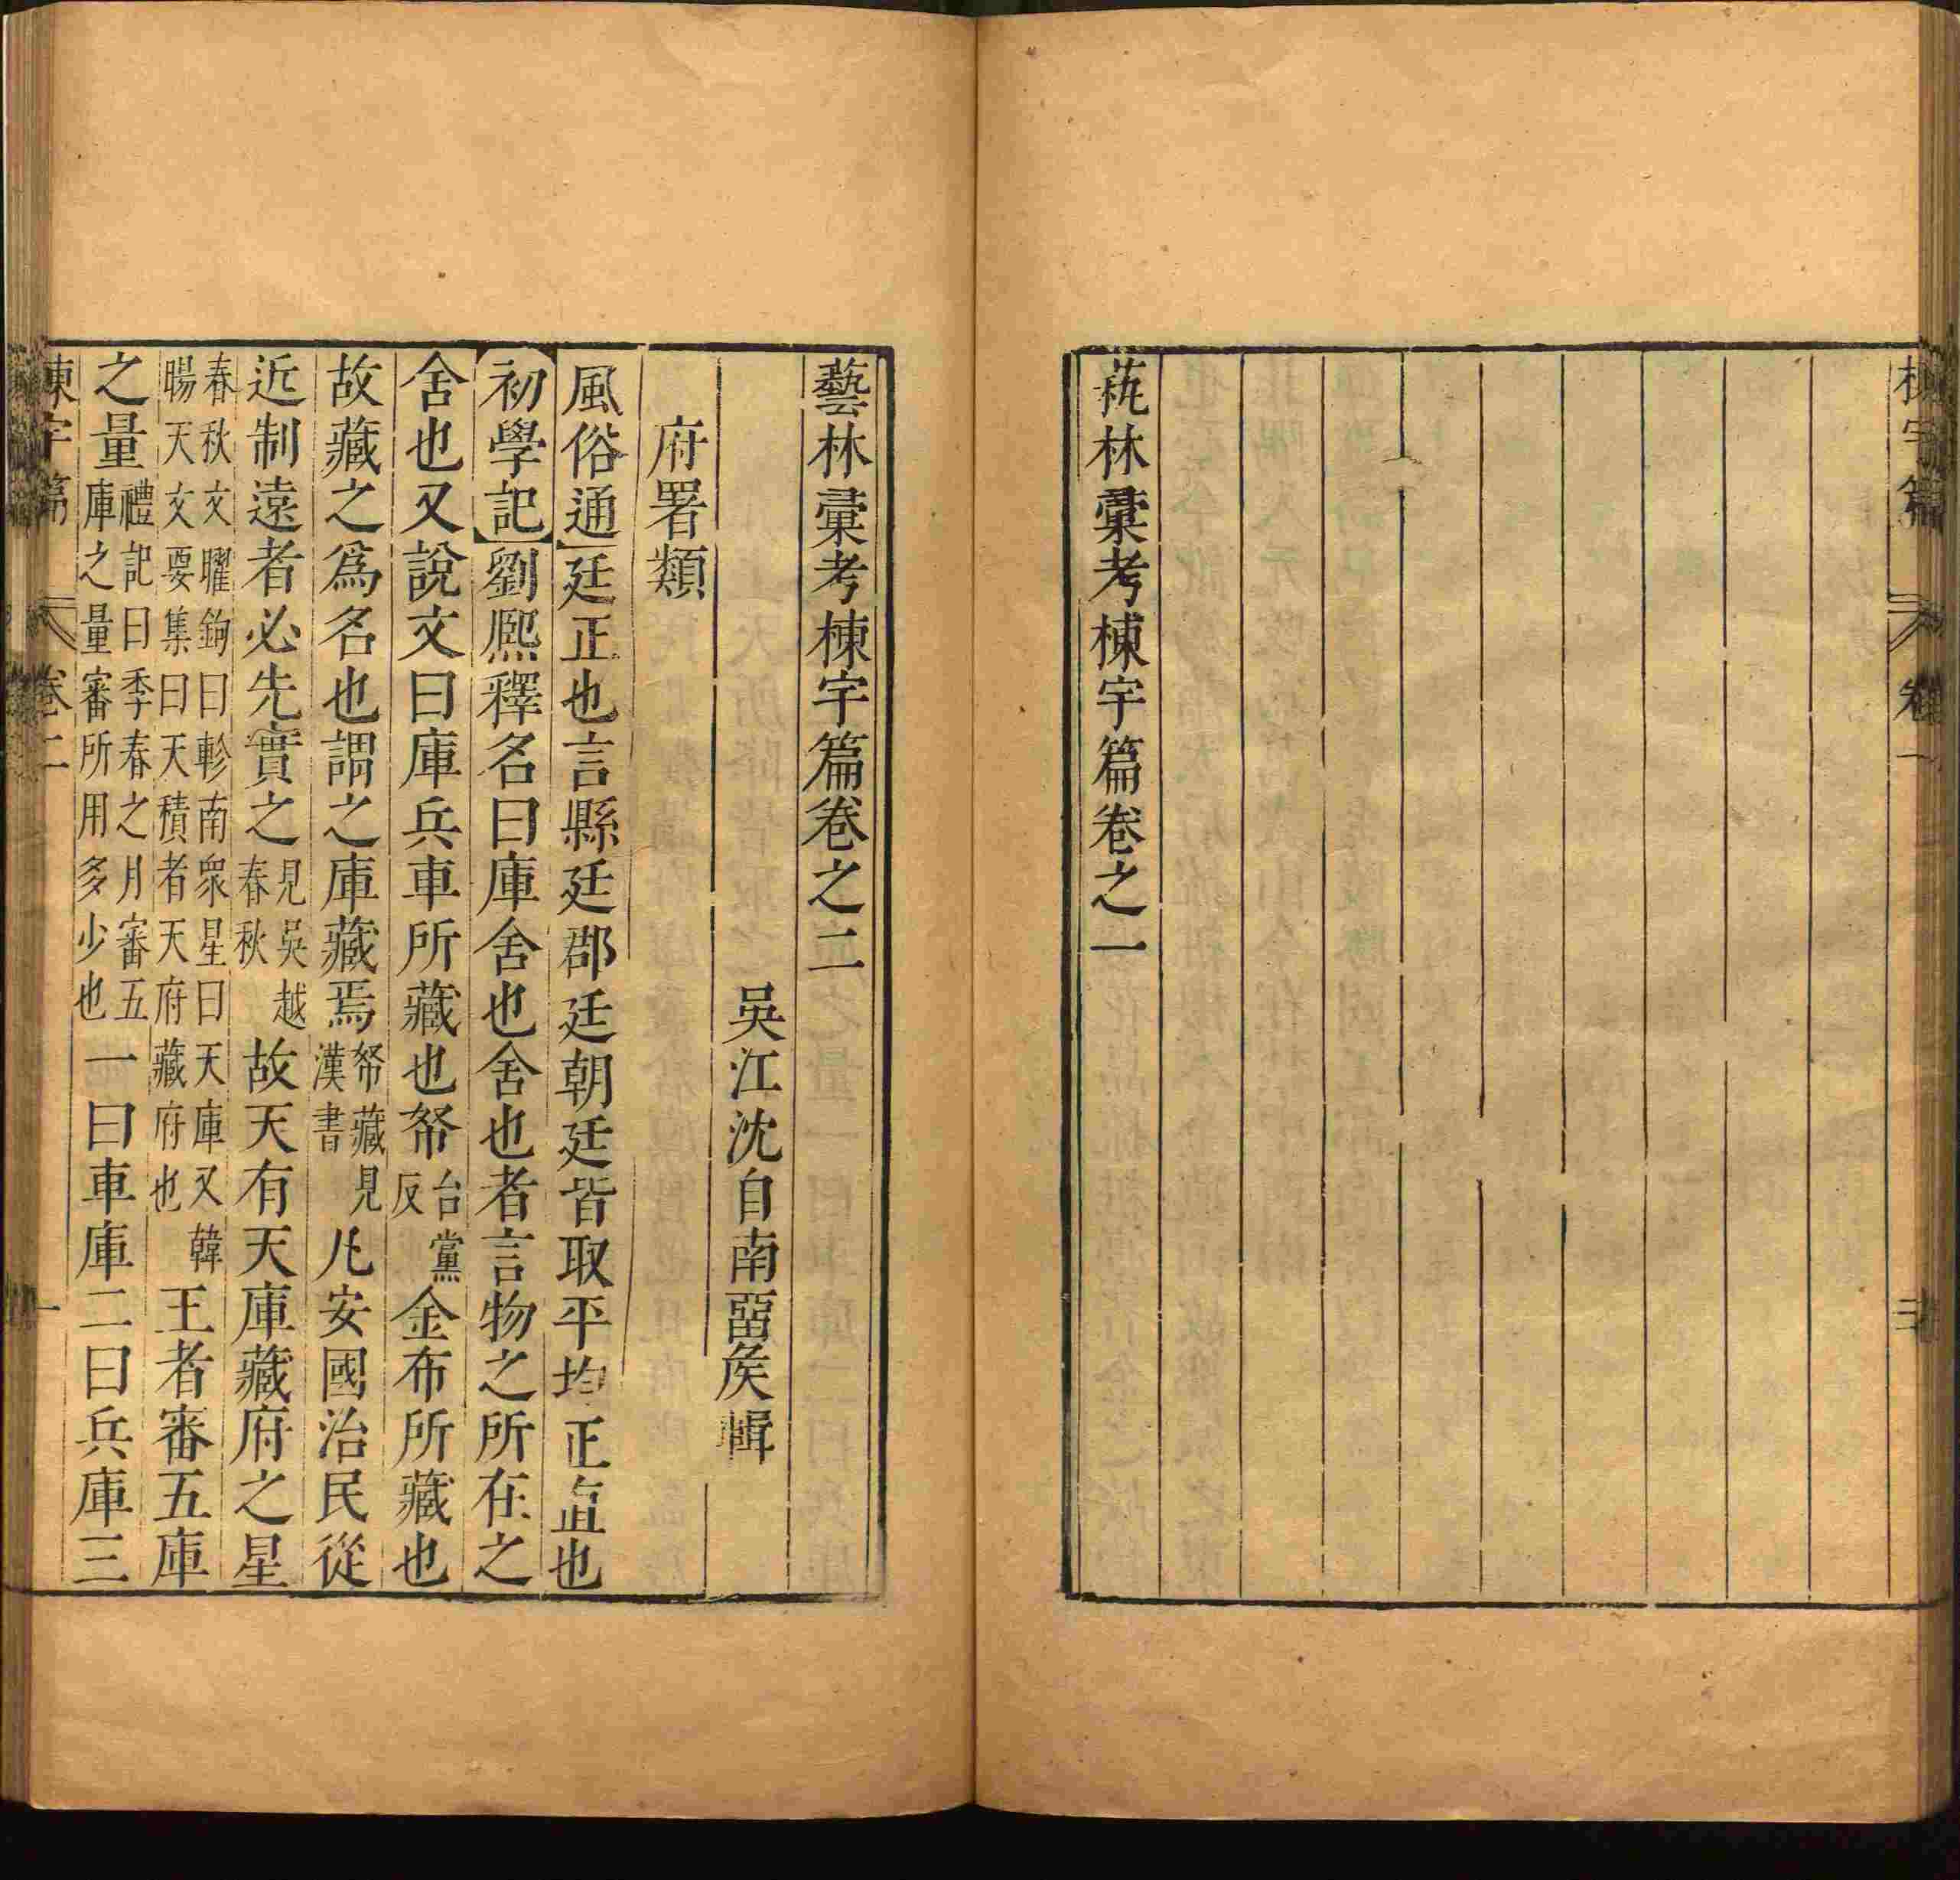 棟宇篇 卷一
萟林彚考棟宇篇卷之一
藝林彚考棟宇篇卷之二
吳江沈自南畱矦輯
府署類
風俗通廷正也言縣廷郡廷朝廷皆取平均正直也
初學記劉熈釋名曰庫舍也舍也者言物之所在之
舍也又說文曰庫兵車所藏也帑台黨反金布所藏也
故藏之爲名也謂之庫藏焉帑藏見漢書凡安國治民從
近制遠者必先實之見吳越春秋故天有天庫藏府之星
春秋文曜鉤曰軫南衆星曰天庫又韓暘天文要集曰天積者天府藏府也王者審五庫
之量禮記曰季春之月審五庫之量審所用多少也一曰車庫二曰兵庫三
棟宇篇 卷二 一